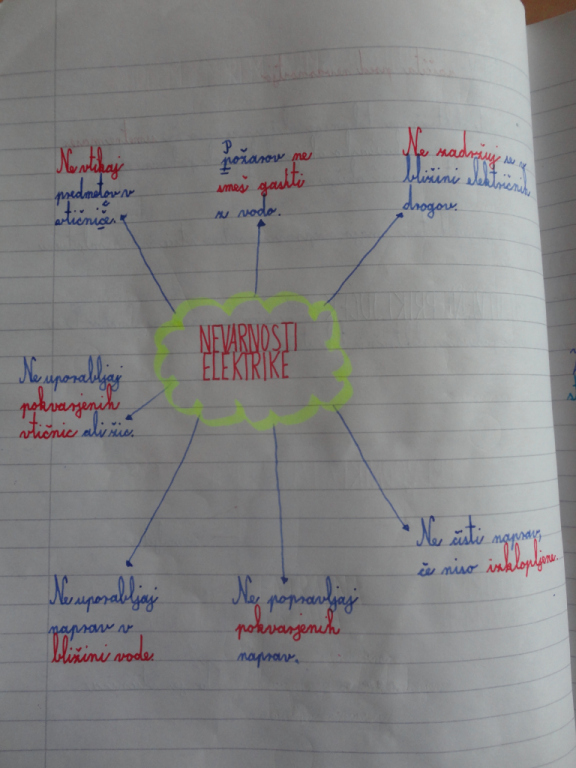 Ne vtikaj
predmetov v
vtičnice.
Požarov ne
smeš gasiti
z vodo.
Ne zadržuj se v
bližini električnih
drogov.
NEVARNOSTI
ELEKTRIKE
Ne uporabljaj
pokvarjenih
vtičnic ali žic.
Ne čisti naprav,
če niso izklopljene.
Ne uporabljaj
naprav v
bližini vode.
Ne popravljaj
pokvarjenih
naprav.